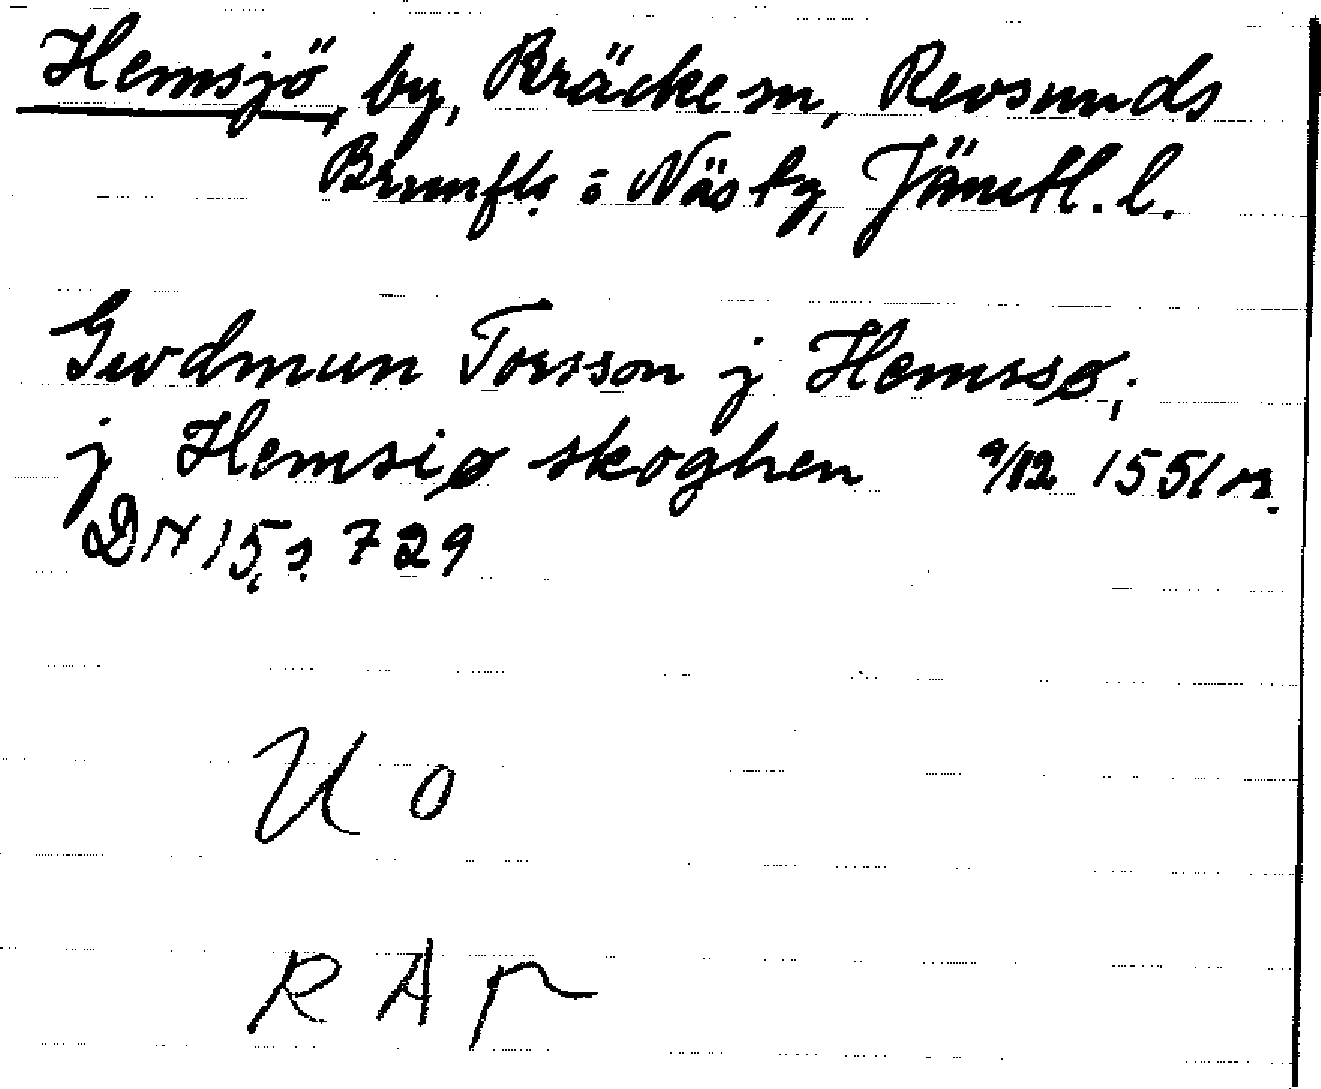 Hemsjö, by, Bräcke sn, Revsunds
Brunflo o Näs tg, Jämtl. l.
Gudmun Torsson j Hemssø;
j Hemsiø skoghen 9/12 1551 or.
DN 15, s. 729
U O
R A